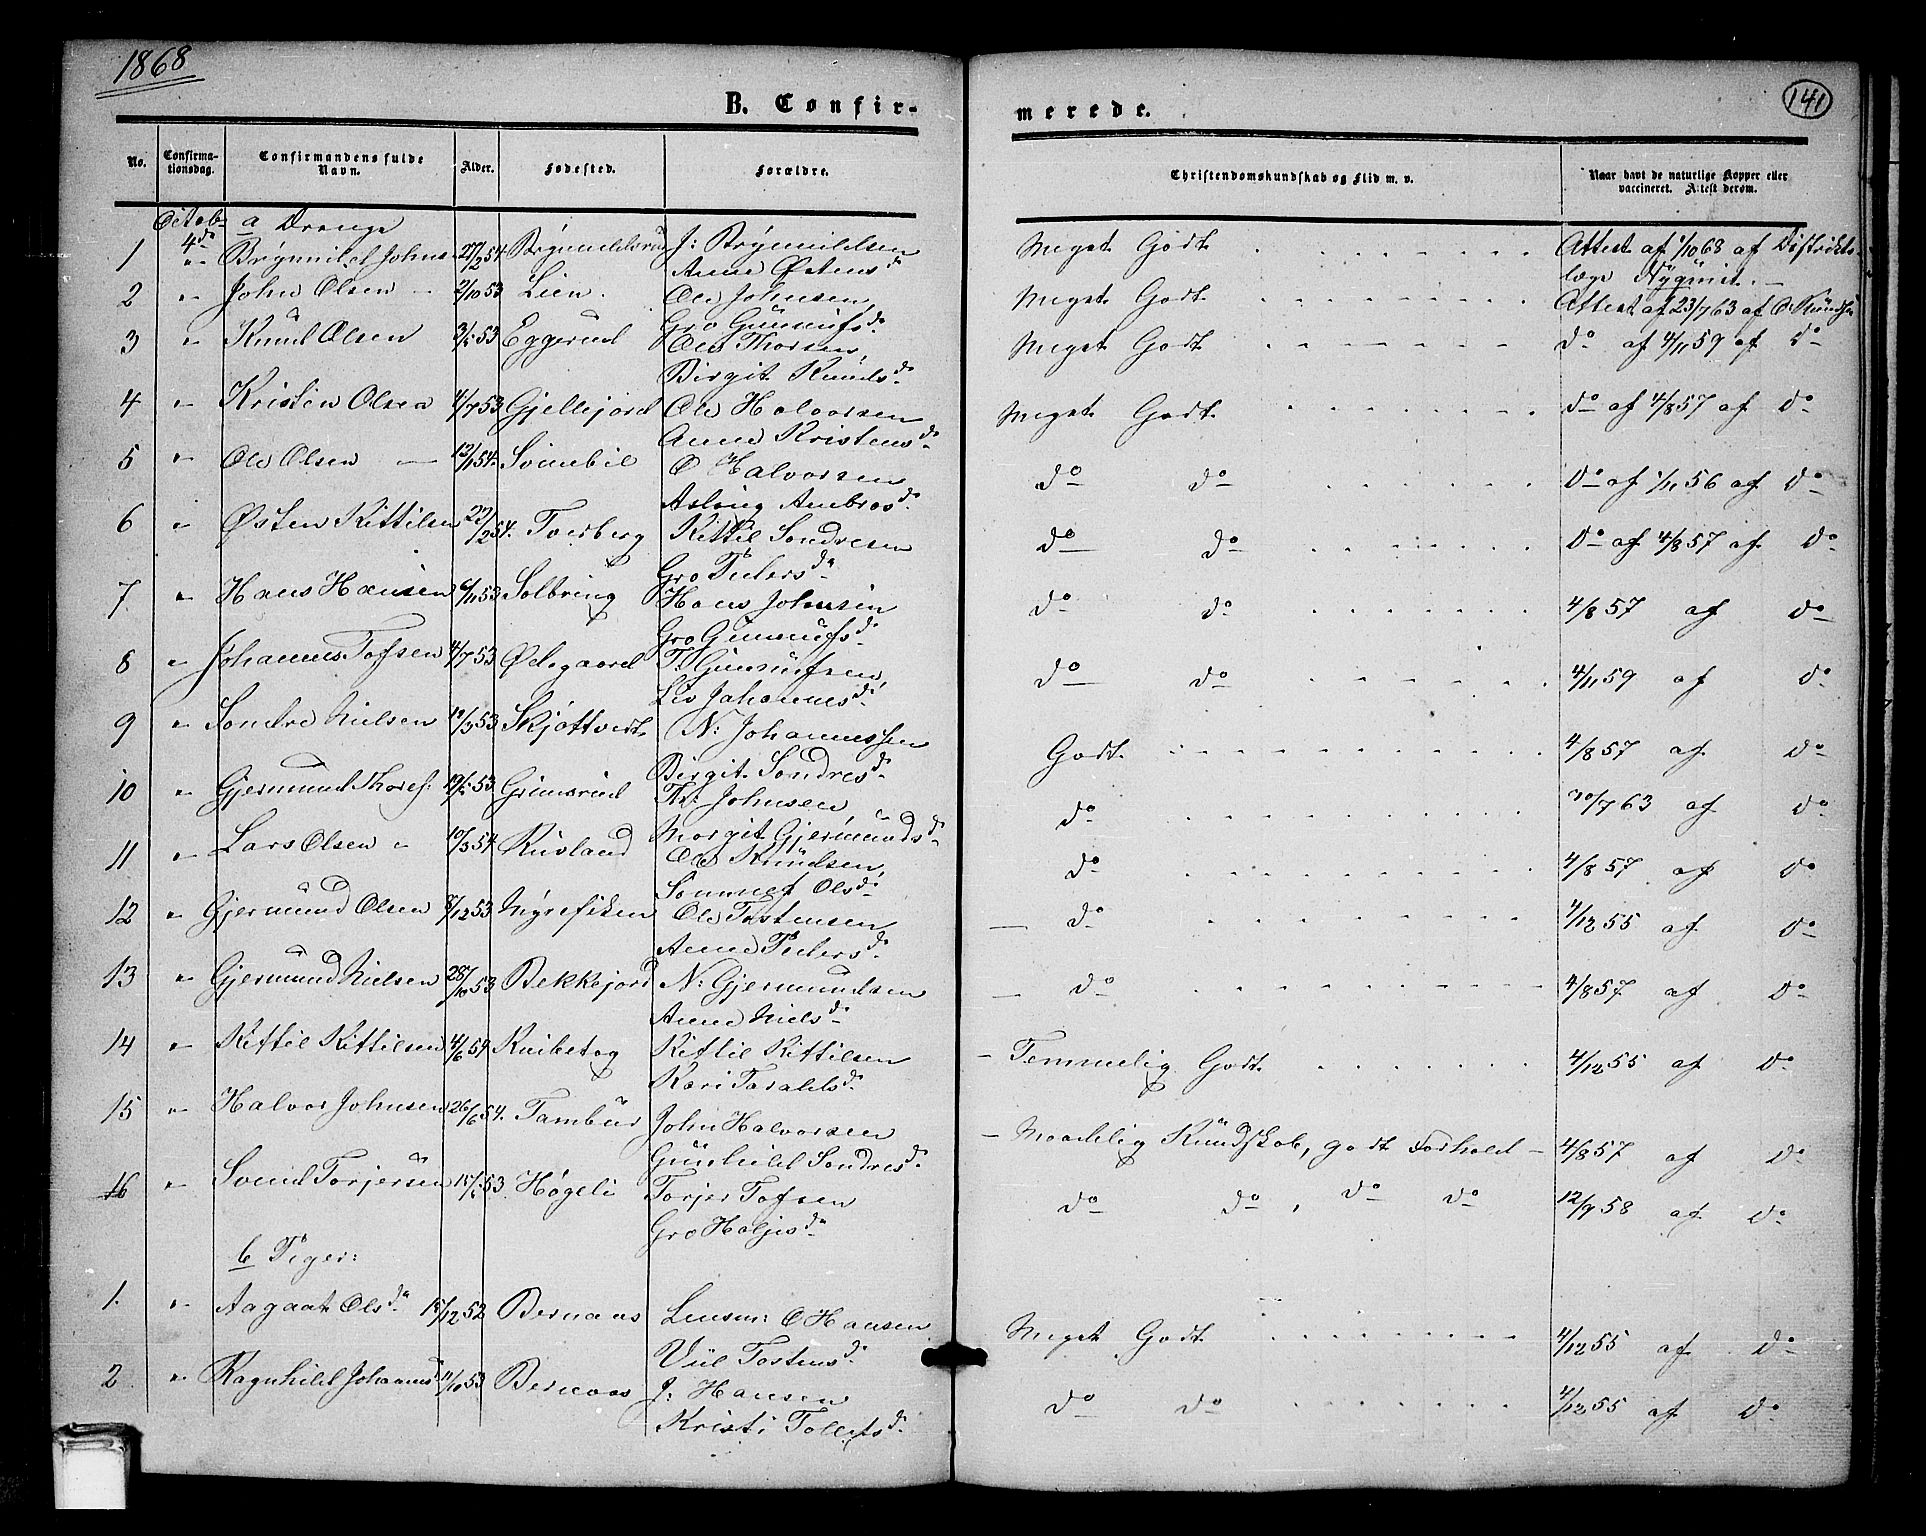 1868
141
B. Confir-
merede.
No.
Confirma-
tionsdag.
Confirmandens fulde
Navn.
Alder.
Fødested.
Forældre.
Christendomskundskab og Flid m. v.
Naar havt de naturlige Kopper eller
vaccineret. Attest derom.
Octob. a Drenge
4de
1 " Brynnild Johns. 27/2 54 J: Brynnildsen Meget Godt Attest af 1/10 68 af Distrikts-
Anne Østensd. læge
2 " John Olsen 2/10 53 Lien. Ole Johnsen Meget Godt Attest af 23/7 63 af
Gro Gunnufsd.
3 " Knud Olsen 53 Eggerud Ole Thorsen Meget Godt do af 4/11 59 af do
Birgit Knudsd.
4 " Kristen Olsen 4/7 53 Gjellejord Ole Halvorsen Meget Godt do af 4/8 57 af do
Anne Kristensd.
5 " Ole Olsen 12/1 54. Svinebil O Halvorsen do do do af 1/11 56 af do
Aslaug Ambrosd.
6 " Østen Kittilsen 22/2 54. Toeberg Kittil Sondresen do do do af 4/8 57 af do
Gro Pedersd.
7 " Hans Hansen 6/11 53 Solbring Hans Johnsen do do 4/8 57 af do
Gro Gunnufsd.
8 " Johannes Tofsen 4/7 53 Ødegaard T. Gunnufsen do do 4/11 59 af do
Liv Johannesd.
9 " Sondre Nielsen 53 Skjøttvedt N: Johannessen Godt 4/8 57 af do
Birgit Sondresd.
10 " Gjermund Thores: 53 Grimsrud Th: Johnsen do 30/7 63 af do
Margit Gjermundsd.
11 " Lars Olsen 10/3 54 Ruvland Ole Knudsen do 4/8 57 af do
Sønnef Olsd.
12 " Gjermund Olsen 8/12 53 Myrefiken Ole Tostensen do 4/12 55 af do
Anne Pedersd.
13 " Gjermund Nielsen 28/10 53 Bekkejord N: Gjermundsen do 4/8 57 af do
Anne Nielsd.
14 " Kittil Kittilsen 4/6 54 Knibetog Kittil Kittilsen Temmelig Godt 4/12 55 af do
Kari Taraldsd.
15 " Halvor Johnsen 26/6 54. Tambur John Halvorsen Maadelig Kundskab, godt Forhold 4/8 57 af do
Gunhild Sondresd.
16 " Svend Torjersen 53 Høgeli Torjer Tofsen do do, do do 12/9 58 af do
Gro Haljesd.
b Piger:
1. " Aagaat Olsd. 15/12 52 Bernaas Lensm: O Hansen Meget Godt 4/12 55 af do
Viil Tostensd.
2 " Ragnhild Johannesd. 11/10 53 Bernaas J: Hansen do do 4/12 55 af do
Kristi Tollefsd.